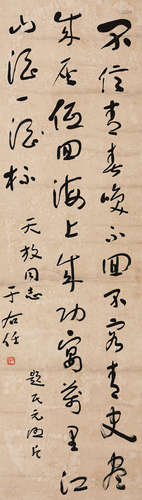 不信青春喚不回不容青史盡
成灰低回海上成功宴萬里江
山酒一杯
天放同志
題民元照片
于右任